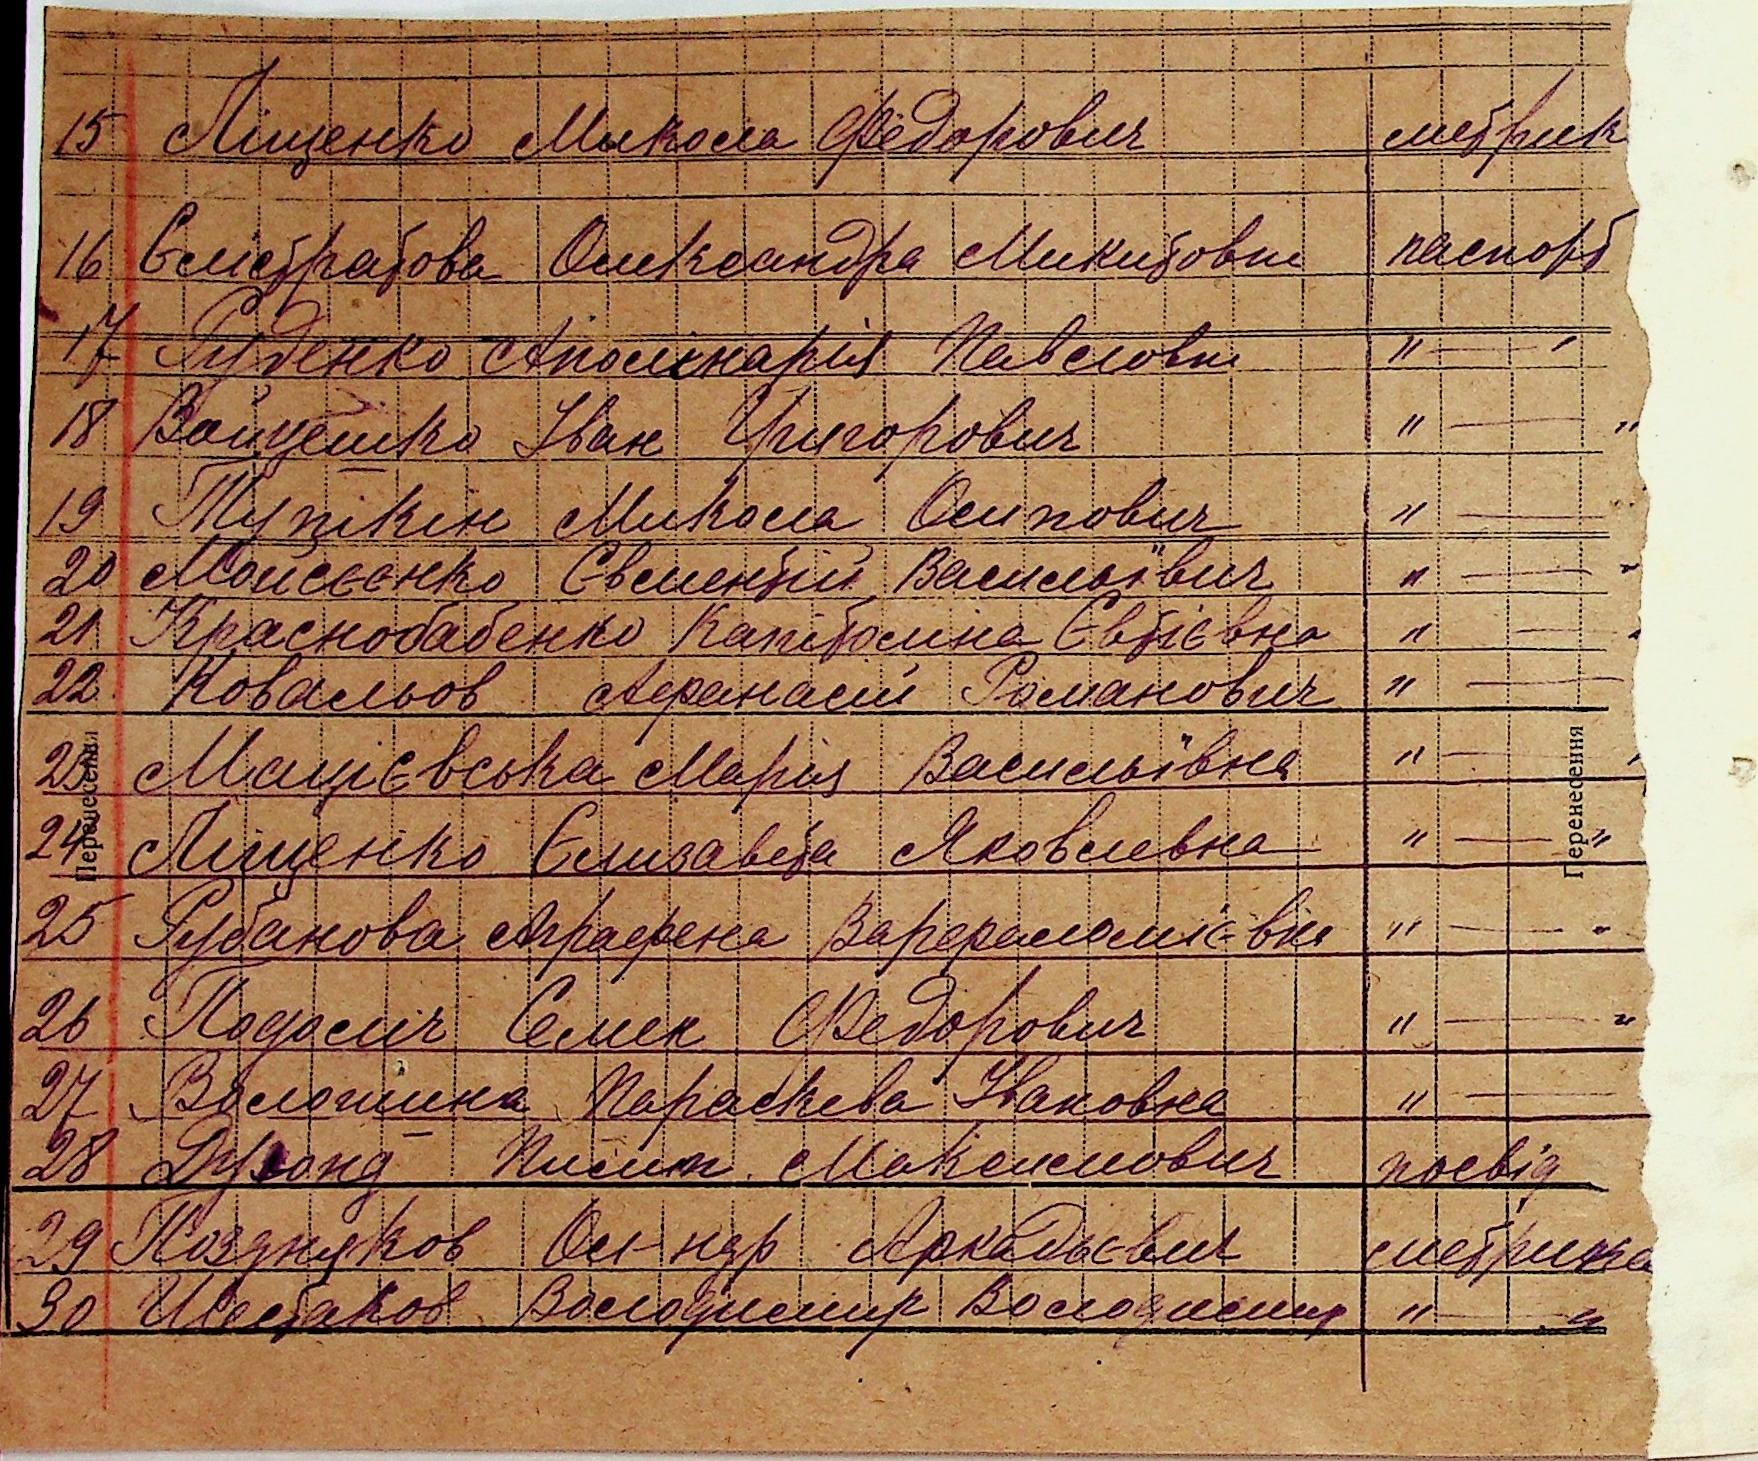 15 Ліщенко Микола Федорович метрик
16 Єлістратова Олександра Микитовн паспорт
17 Руденко Аполінарія Павловн " — "
18 Іван Григорович " — "
19 Тупікін Микола Осипович " —
20 Мойсеєнко Євментій Васильївич " — "
21 Краснобабенко Капітоліна Євтієвна " — "
22 Ковальов Афанасій Романович " —
23 Мацієвська Марія Васильївна " — "
24 Ліщенко Єлизавета Яковлевна " — "
25 Рубанова Аграфена Варфаламієвна " — "
26 Подоліч Семен Федорович " — "
27 Волошина Параскева Івановна " —
28 Пилип Максимович посвід
29 Поздняков Ол-ндр Аркадьєвич метрика
30 Шестаков Володимир Володимир " — "
Перенесення
Перенесення